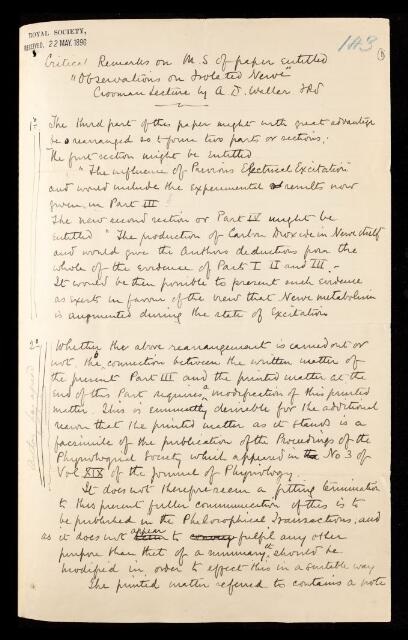 ROYAL SOCIETY,
RECEIVED, 22 MAY. 1896
143
Critical Remarks on M.S of paper entitled
"Observations on Isolated Nerve"
Croonian Lecture by A. D. Waller FRS
1º The third part of this paper might with great advantage
be rearranged so as to form two parts or sections;
The first section might be entitled
"The influence of Previous Electrical Excitation"
and would include the experimental results now
given in Part III
The new second section or Part IV might be
entitled "The production of Carbon Dioxide in Nerve itself
and would give the Authors deductions from the
whole of the evidence of Part I II and III.
It would be then possible to present such evidence
as exists in favour of the view that Nerve metabolism
is augmented during the state of Excitation
2º Whether the above rearrangement is carried out or
not, the connection between the written matter of
the present Part III and the printed matter at the
end of this Part requires a modification of this printed
matter. This is eminently desirable for the additional
reason that the printed matter as it stands is a
facsimile of the publication of the Proceedings of the
Physiological Society which appeared in the No 3 of
Vol XIX of the Journal of Physiology.
It does not therefore seem a fitting termination
to this present fuller communication if this is to
be published in the Philosophical Transactions, and
as it does not appear to fulfil any other
purpose than that of a summary it should be
modified in order to effect this in a suitable way
The printed matter referred to contains a note